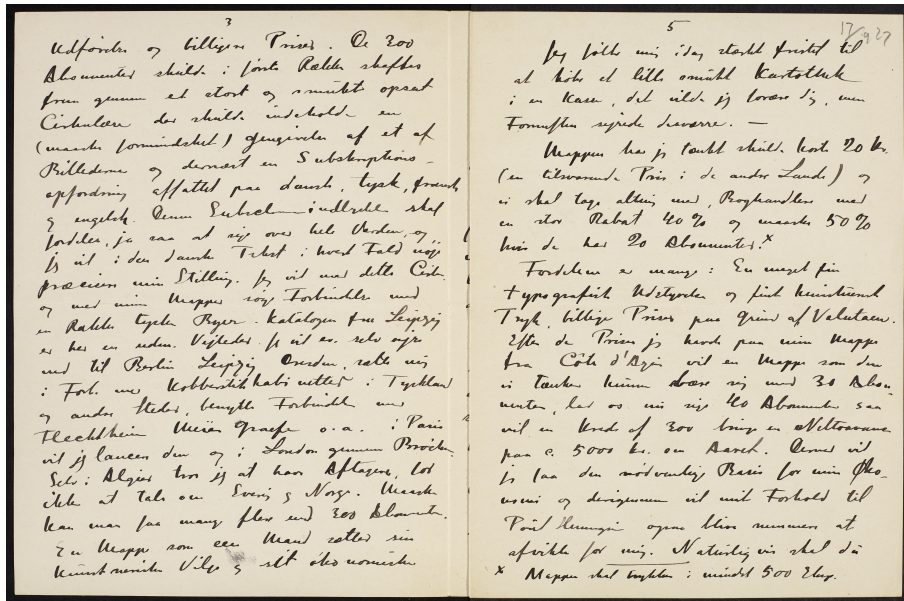 3
Udførelse og billigere Priser. De 300
Abonnenter skulde i første Række skaffes
frem gennem et stort og smukt opsat
Cirkulære der skulde indeholde en
(maaske formindsket) Gengivelse af et af
Billederne og dernæst en Subskriptions-
opfordring affattet paa dansk, tysk, fransk
og engelsk. Denne indbydelse skal
fordeles, ja saa at sige over hele Verden, og
jeg vil i den danske Tekst i hvert Fald nøje
præcisere min Stilling. Jeg vil med dette Cirk.
og med min Mappe søge Forbindelse med
en Række tyske Byer. Katalogen fra Leipzig
er her en udm. Vejleder. Jeg vil ev. selv rejse
ned til Berlin Leipzig Dresden, sætte mig
i Forb. med Kobberstikkabinetter i Tyskland
og andre Steder, benytte Forbindelse med
Flechtheim Meier Graefe o.a. i Paris
vil jeg lancere den og i London gennem
Selv i Algier tror jeg at have Aftagere, for
ikke at tale om Sverig og Norge. Maaske
kan man faa mange flere end 300 Abonnenter.
En Mappe som een Mand sætter sin
kunstneriske Vilje og sit økonomiske
5
17/9 27
Jeg følte mig idag stærkt fristet til
at købe et lille smukt Kartothek
i en Kasse, det vilde jeg forære dig, men
Fornuften sejrede desværre. —
Mappen har jeg tænkt skulde koste 20 Kr.
(en tilsvarende Pris i de andre Lande) og
vi skal tage alting med, Boghandlere med
en stor Rabat 40% og maaske 50%
hvis de har 20 Abonnenter.x
Fordelene er mange: En meget fin
typografisk Udstyrelse og fint kunstnerisk
Tryk, billige Priser paa Grund af Valutaen.
Efter de Priser jeg havde paa min Mappe
fra Côte d'Azur vil en Mappe som den
vi tænker kunne bære sig med 30 Abon-
nenter, lad os nu sige 40 Abonnenter saa
vil en Kreds af 300 bringe en Nettoavance
paa c. 5000 kr. om Aaret. Derved vil
jeg faa den nødvendige Basis for min Øko-
nomi og derigennem vil mit Forhold til
Poul Henningsen ogsaa blive nemmere at
afvikle for mig. Naturligvis skal du
x Mappen skal trykkes i mindst 500 Ekspl.